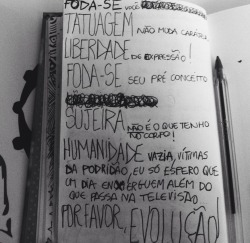 FODA-SE VOCÊ
TATUAGEM NÃO MUDA CARÁTER
LIBERDADE DE EXPRESSÃO!
FODA-SE SEU PRÉ CONCEITO
SUJEIRA NÃO É O QUE TENHO
NO CORPO!
HUMANIDADE VAZIA, VÍTIMAS
DA PODRIDÃO, EU SÓ ESPERO QUE
UM DIA ENXERGUEM ALÉM DO
QUE PASSA NA TELEVISÃO
POR FAVOR, EVOLUÇÃO!